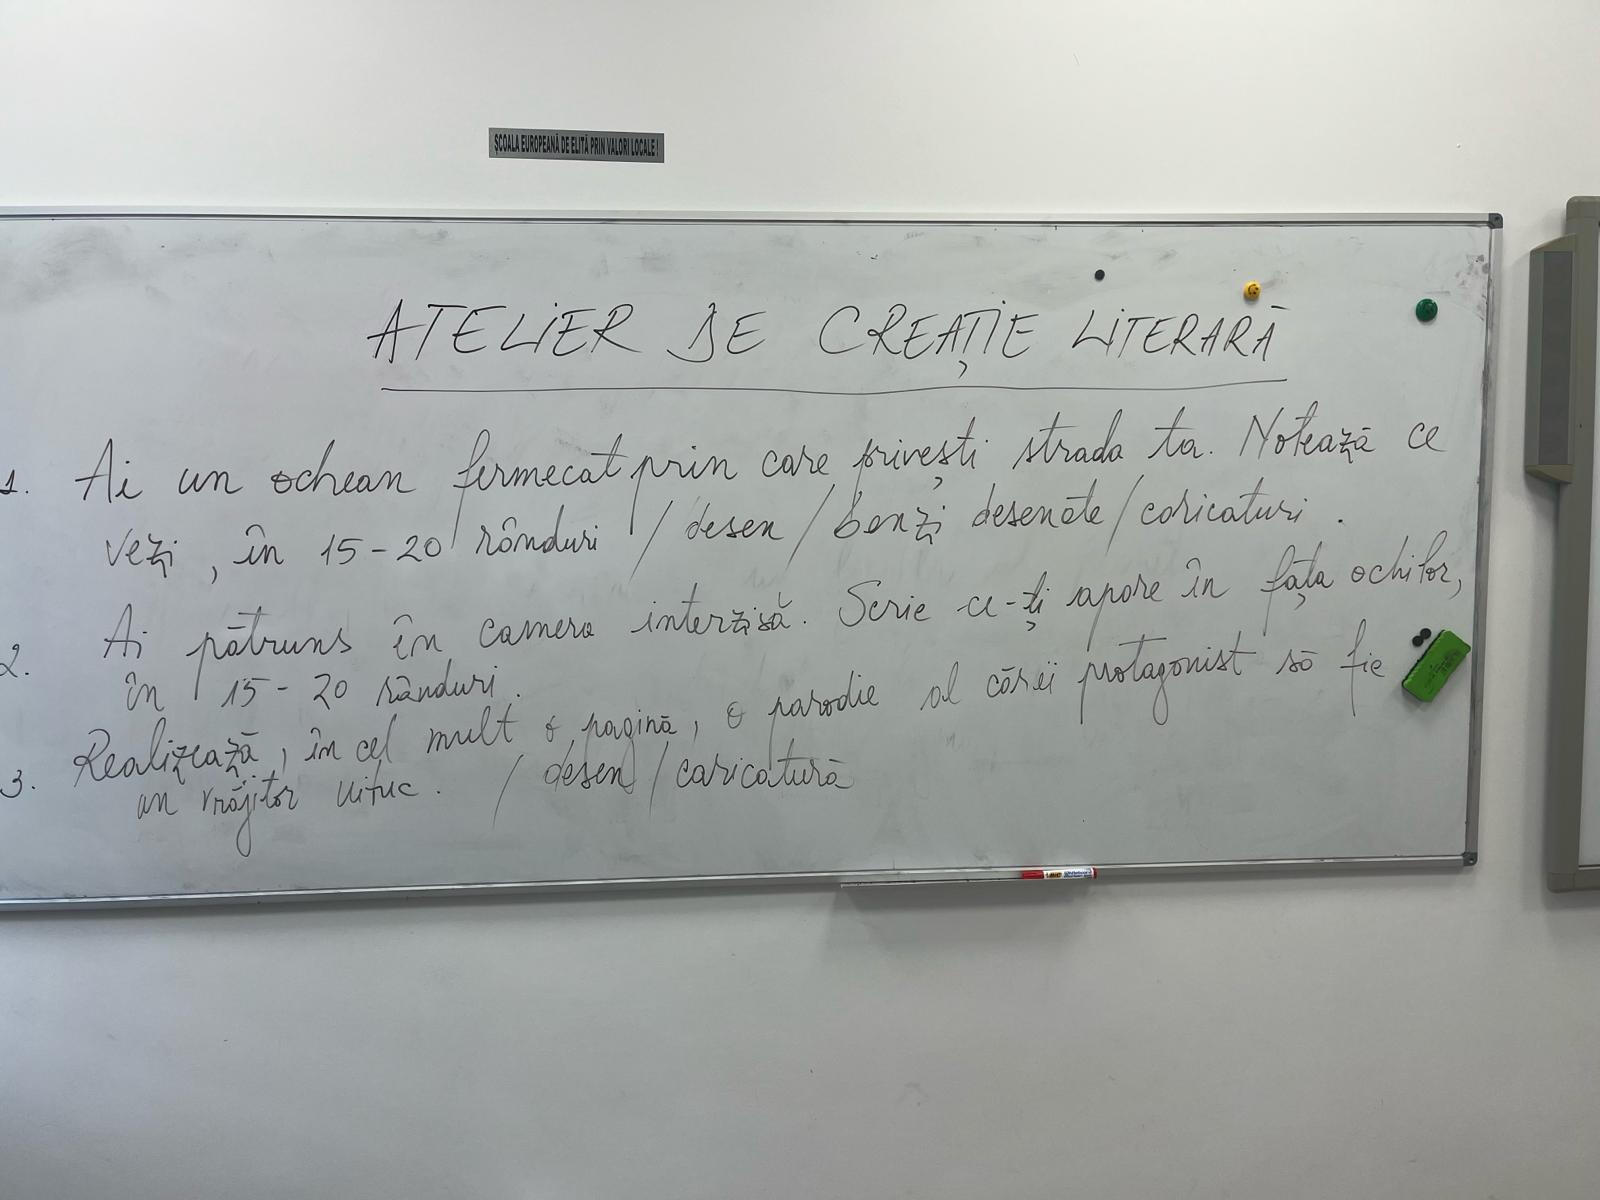 ȘCOALA EUROPEANĂ DE ELITĂ PRIN VALORI LOCALE !
ATELIER DE CREAȚIE LITERARĂ
1. Ai un ochean fermecat prin care privești strada ta. Notează ce
vezi, în 15-20 rânduri / desen / benzi desenate / caricaturi.
2. Ai pătruns în camera interzisă. Scrie ce-ți apare în fața ochilor,
în 15-20 rânduri.
3. Realizează, în cel mult o pagină, o parodie al cărei protagonist să fie
un vrăjitor uituc. / desen / caricatură
BIC